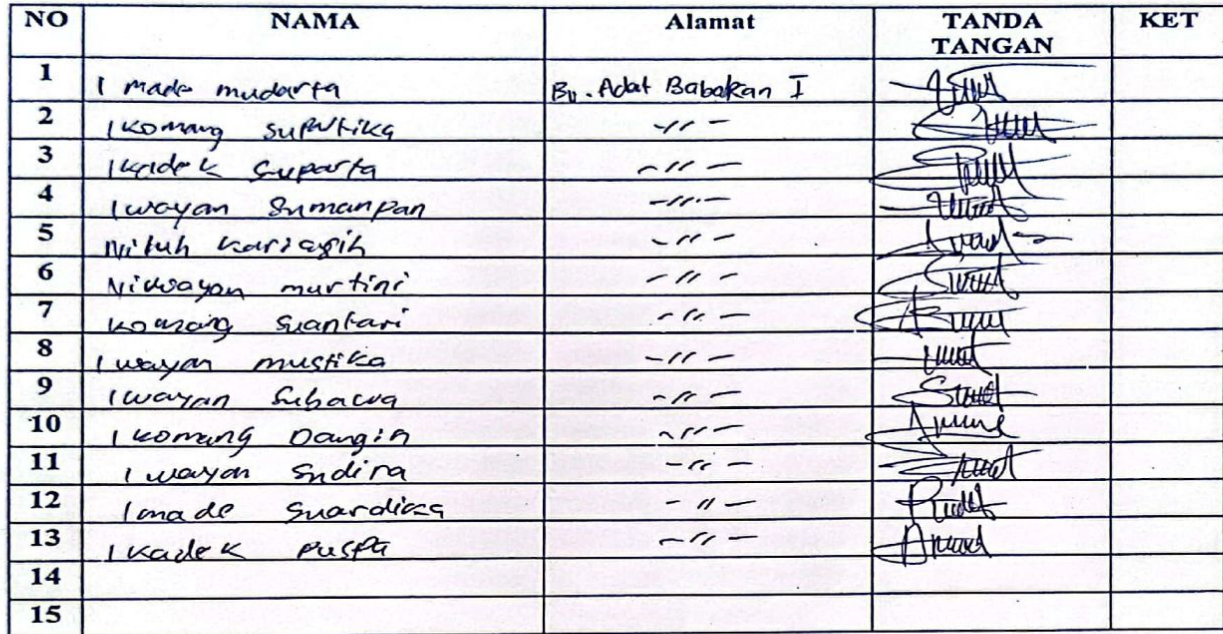 NO NAMA Alamat TANDA TANGAN KET
1 I made mudarta Br. Adat Babakan I
2 I komang supartika -〃-
3 I kadek suparta -〃-
4 I wayan Sumanpan -〃-
5 Niluh kariasih -〃-
6 Ni wayan murtini -〃-
7 komang suantari -〃-
8 I wayan mustika -〃-
9 I wayan Subawa -〃-
10 I komang Dangin -〃-
11 I wayan Sudira -〃-
12 I made Suardika 〃
13 I kadek puspa -〃-
14
15